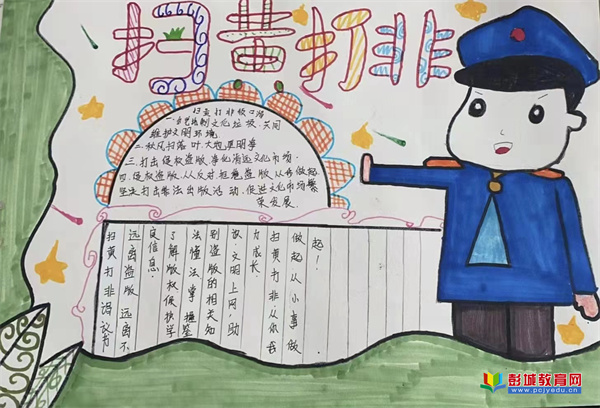 扫黄打非
扫黄打非级口号
一.自觉抵制文化垃圾、共同
维护文明环境
二.秋风扫落叶大地显明季
三.打击侵权盗版 净化清远文化市场.
四.侵权盗版.从反对拒绝盗版.从我做起
坚定打击非法出版活动.促进文化市场繁
荣发展.
扫黄打非倡议书
远离盗版 远离不
良信息.
了解版权保护学
法懂法掌握鉴
别盗版的相关知
识.文明上网,助
力成长.
扫黄打非从你我
做起从小事做
起!
彭城教育网
www.pcjyedu.cn